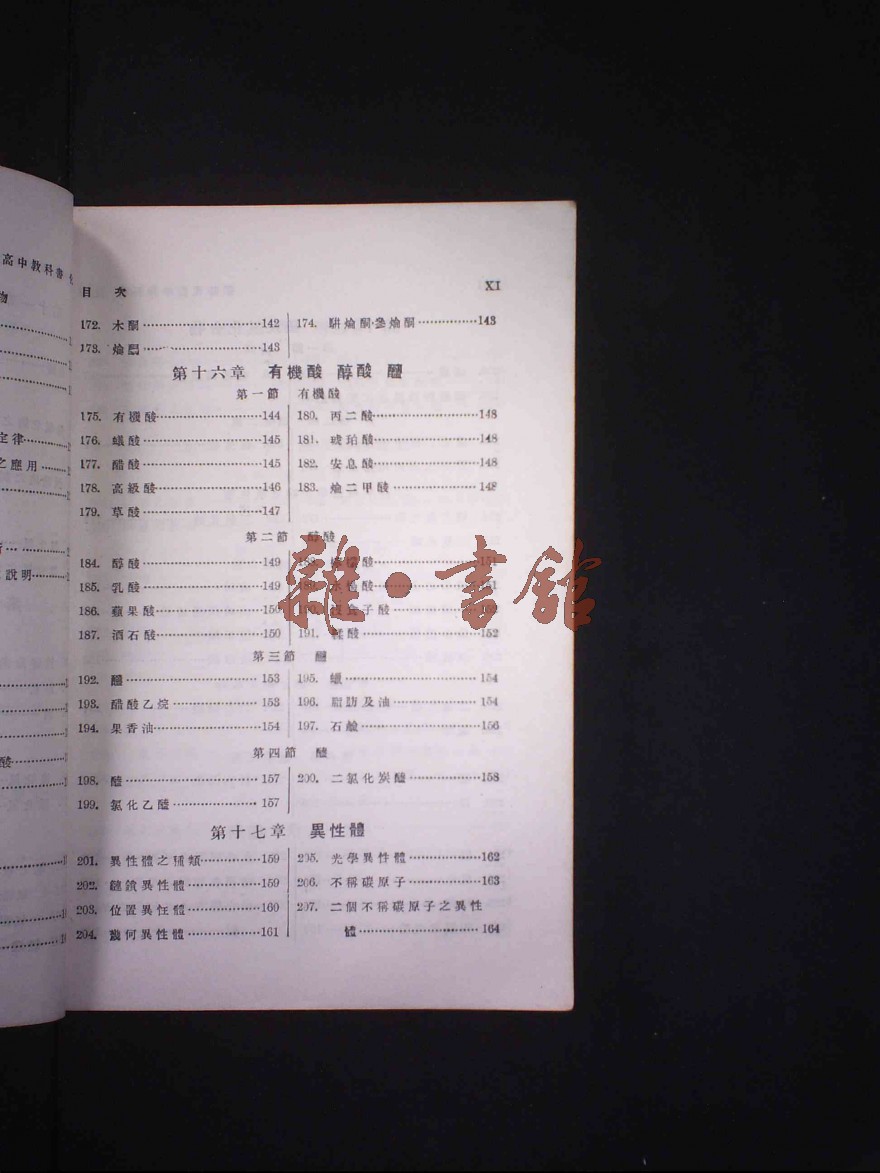 高中教科書
物
定律
之應用
說明
酸
目 次
XI
172. 木酮 142
173. 143
174. 143
第十六章 有機酸 醇酸
第一節 有機酸
175. 有機酸 144
176. 蟻酸 145
177. 醋酸 145
178. 高級酸 146
179. 草酸 147
180. 丙二酸 148
181. 琥珀酸 148
182. 安息酸 148
183. 二甲酸 148
第二節 醇酸
184. 醇酸 149
185. 乳酸 149
186. 蘋果酸 150
187. 酒石酸 150
酸 151
酸 151
子酸
191. 鞣酸 152
第三節
192. 153
193. 醋酸乙烷 153
194. 果香油 154
195. 蠟 154
196. 脂肪及油 154
197. 石鹼 156
第四節
198. 157
199. 氯化乙醯 157
200. 二氯化炭醯 158
第十七章 異性體
201. 異性體之種類 159
202. 鏈鎖異性體 159
203. 位置異性體 160
204. 幾何異性體 161
205. 光學異性體 162
206. 不稱碳原子 163
207. 二個不稱碳原子之異性
體 164
雜·書館